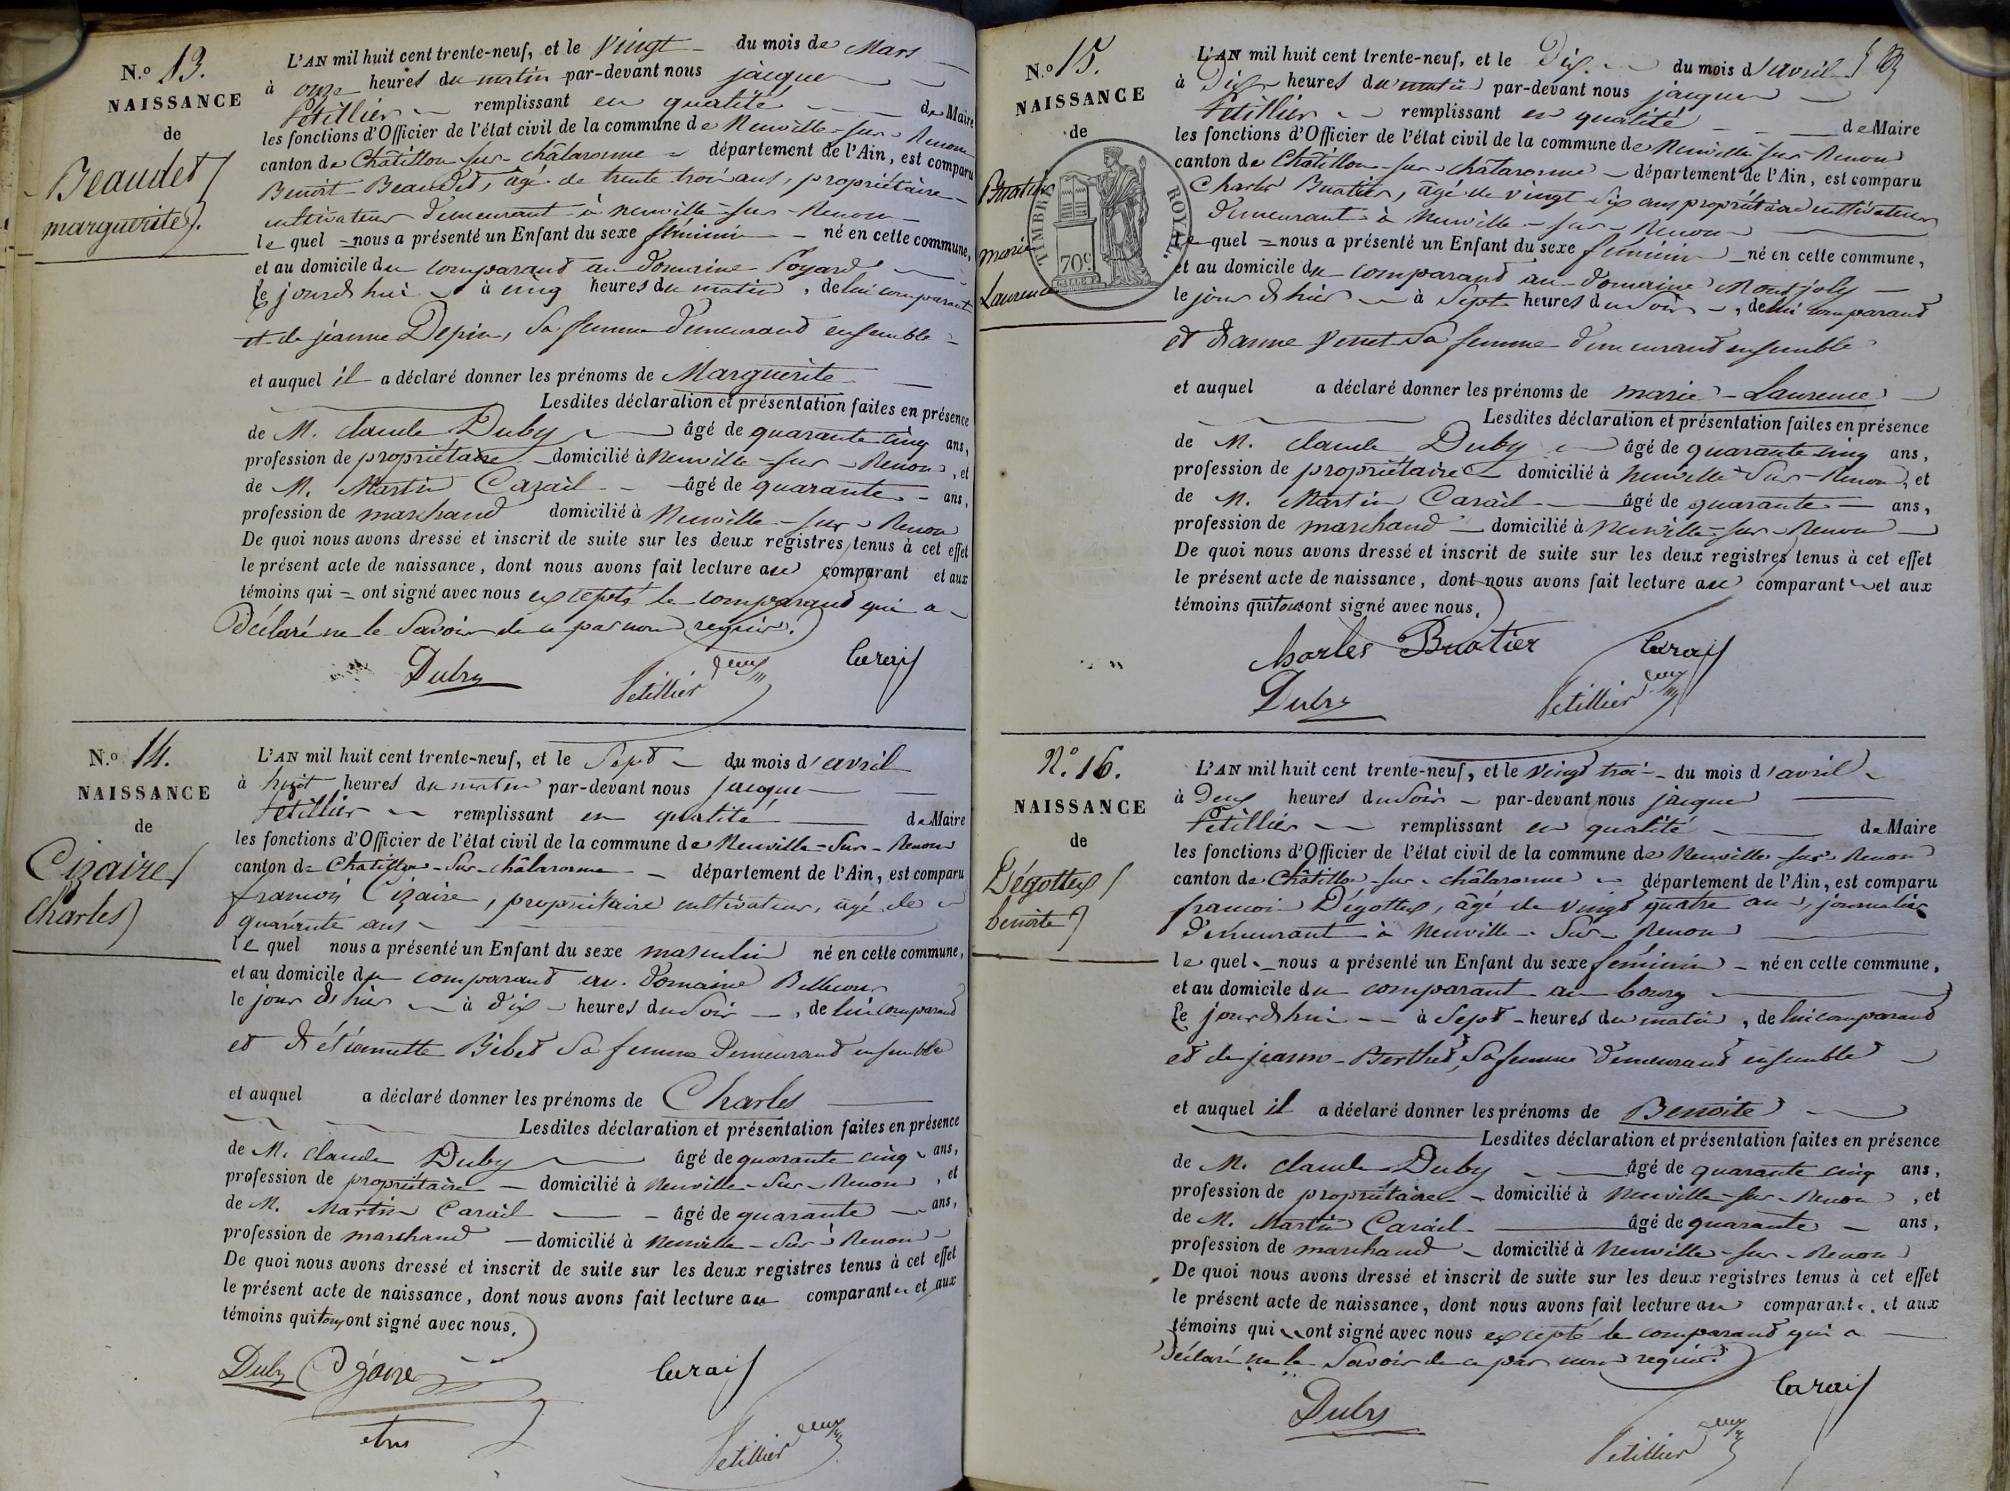 N.º 13.
NAISSANCE
de
Beaudet
marguerite
L'AN mil huit cent trente-neuf, et le vingt du mois de Mars
à onze heures du matin par-devant nous jacque
Petillier remplissant en qualité de Maire
les fonctions d'Officier de l'état civil de la commune de Neuville-sur-Renom
canton de Châtillon-sur-châlaronne département de l'Ain, est comparu
Benoit Beaudet, âgé de trente trois ans, propriétaire
cultivateur demeurant à neuville-sur-Renom
le quel nous a présenté un Enfant du sexe féminin né en cette commune,
et au domicile du comparand au domaine Poyard
le jourd'hui à cinq heures du matin, de lui comparant
et de jeanne Depin, sa femme demeurand ensemble
et auquel il a déclaré donner les prénoms de Marguerite
Lesdites déclaration et présentation faites en présence
de M. claude Duby âgé de quarante cinq ans,
profession de propriétaire domicilié à Neuville-sur-Renom, et
de M. Martin Carail âgé de quarante ans,
profession de marchand domicilié à Neuville-sur-Renom
De quoi nous avons dressé et inscrit de suite sur les deux registres tenus à cet effet
le présent acte de naissance, dont nous avons fait lecture au comparant et aux
témoins qui ont signé avec nous excepté le comparand qui a
déclaré ne le savoir de ce par nous requis.
Duby Petillier Carail
N.º 14.
NAISSANCE
de
Cizaire
Charles
L'AN mil huit cent trente-neuf, et le sept du mois d'avril
à huit heures du matin par-devant nous jacque
Petillier remplissant en qualité de Maire
les fonctions d'Officier de l'état civil de la commune de Neuville-sur-Renom
canton de Chatillon-sur-châlaronne département de l'Ain, est comparu
francois Cizaire, propriétaire cultivateur, âgé de
quarante ans
le quel nous a présenté un Enfant du sexe masculin né en cette commune,
et au domicile du comparand au domaine Bellecour
le jour d'hier à dix heures du soir, de lui comparand
et d'étiennette Bibet sa femme demeurand ensemble
et auquel a déclaré donner les prénoms de Charles
Lesdites déclaration et présentation faites en présence
de M. claude Duby âgé de quarante cinq ans,
profession de propriétaire domicilié à Neuville-sur-Renom, et
de M. Martin Carail âgé de quarante ans,
profession de marchand domicilié à Neuville-sur-Renom
De quoi nous avons dressé et inscrit de suite sur les deux registres tenus à cet effet
le présent acte de naissance, dont nous avons fait lecture au comparant et aux
témoins qui tous ont signé avec nous.
Duby Cizaire Carail
Petillier
N.º 15.
NAISSANCE
de
Buatier
marie
Laurence
TIMBRE ROYAL.
70c
L'AN mil huit cent trente-neuf, et le Dix du mois d'avril
à Dix heures du matin par-devant nous jacque
Petillier remplissant en qualité de Maire
les fonctions d'Officier de l'état civil de la commune de Neuville-sur-Renom
canton de Chatillon-sur-châlaronne département de l'Ain, est comparu
Charles Buatier, âgé de vingt six ans propriétaire cultivateur
demeurant à Neuville-sur-Renom
le quel nous a présenté un Enfant du sexe féminin né en cette commune,
et au domicile du comparand au domaine Montjoly
le jour d'hier à sept heures du soir, de lui comparand
et d'anne Venet sa femme demeurand ensemble
et auquel a déclaré donner les prénoms de marie-Laurence
Lesdites déclaration et présentation faites en présence
de M. claude Duby âgé de quarante cinq ans,
profession de propriétaire domicilié à Neuville-sur-Renom, et
de M. Martin Carail âgé de quarante ans,
profession de marchand domicilié à Neuville-sur-Renom
De quoi nous avons dressé et inscrit de suite sur les deux registres tenus à cet effet
le présent acte de naissance, dont nous avons fait lecture au comparant et aux
témoins qui tous ont signé avec nous.
Charles Buatier Carail
Duby Petillier
N.º 16.
NAISSANCE
de
Dégottex
benoite
L'AN mil huit cent trente-neuf, et le vingt trois du mois d'avril
à Deux heures du soir par-devant nous jacque
Petillier remplissant en qualité de Maire
les fonctions d'Officier de l'état civil de la commune de Neuville-sur-Renom
canton de Châtillon-sur-châlaronne département de l'Ain, est comparu
francois Dégottex, âgé de vingt quatre ans, journalier
demeurant à Neuville-sur-Renom
le quel nous a présenté un Enfant du sexe féminin né en cette commune,
et au domicile du comparant au bourg
le jourd'hui à sept heures du matin, de lui comparand
et de jeanne Berthet, sa femme demeurand ensemble
et auquel il a déclaré donner les prénoms de Benoite
Lesdites déclaration et présentation faites en présence
de M. claude Duby âgé de quarante cinq ans,
profession de propriétaire domicilié à Neuville-sur-Renom, et
de M. Martin Carail âgé de quarante ans,
profession de marchand domicilié à Neuville-sur-Renom
De quoi nous avons dressé et inscrit de suite sur les deux registres tenus à cet effet
le présent acte de naissance, dont nous avons fait lecture au comparant et aux
témoins qui ont signé avec nous excepté le comparand qui a
déclaré ne le savoir de ce par nous requis.
Duby Carail
Petillier